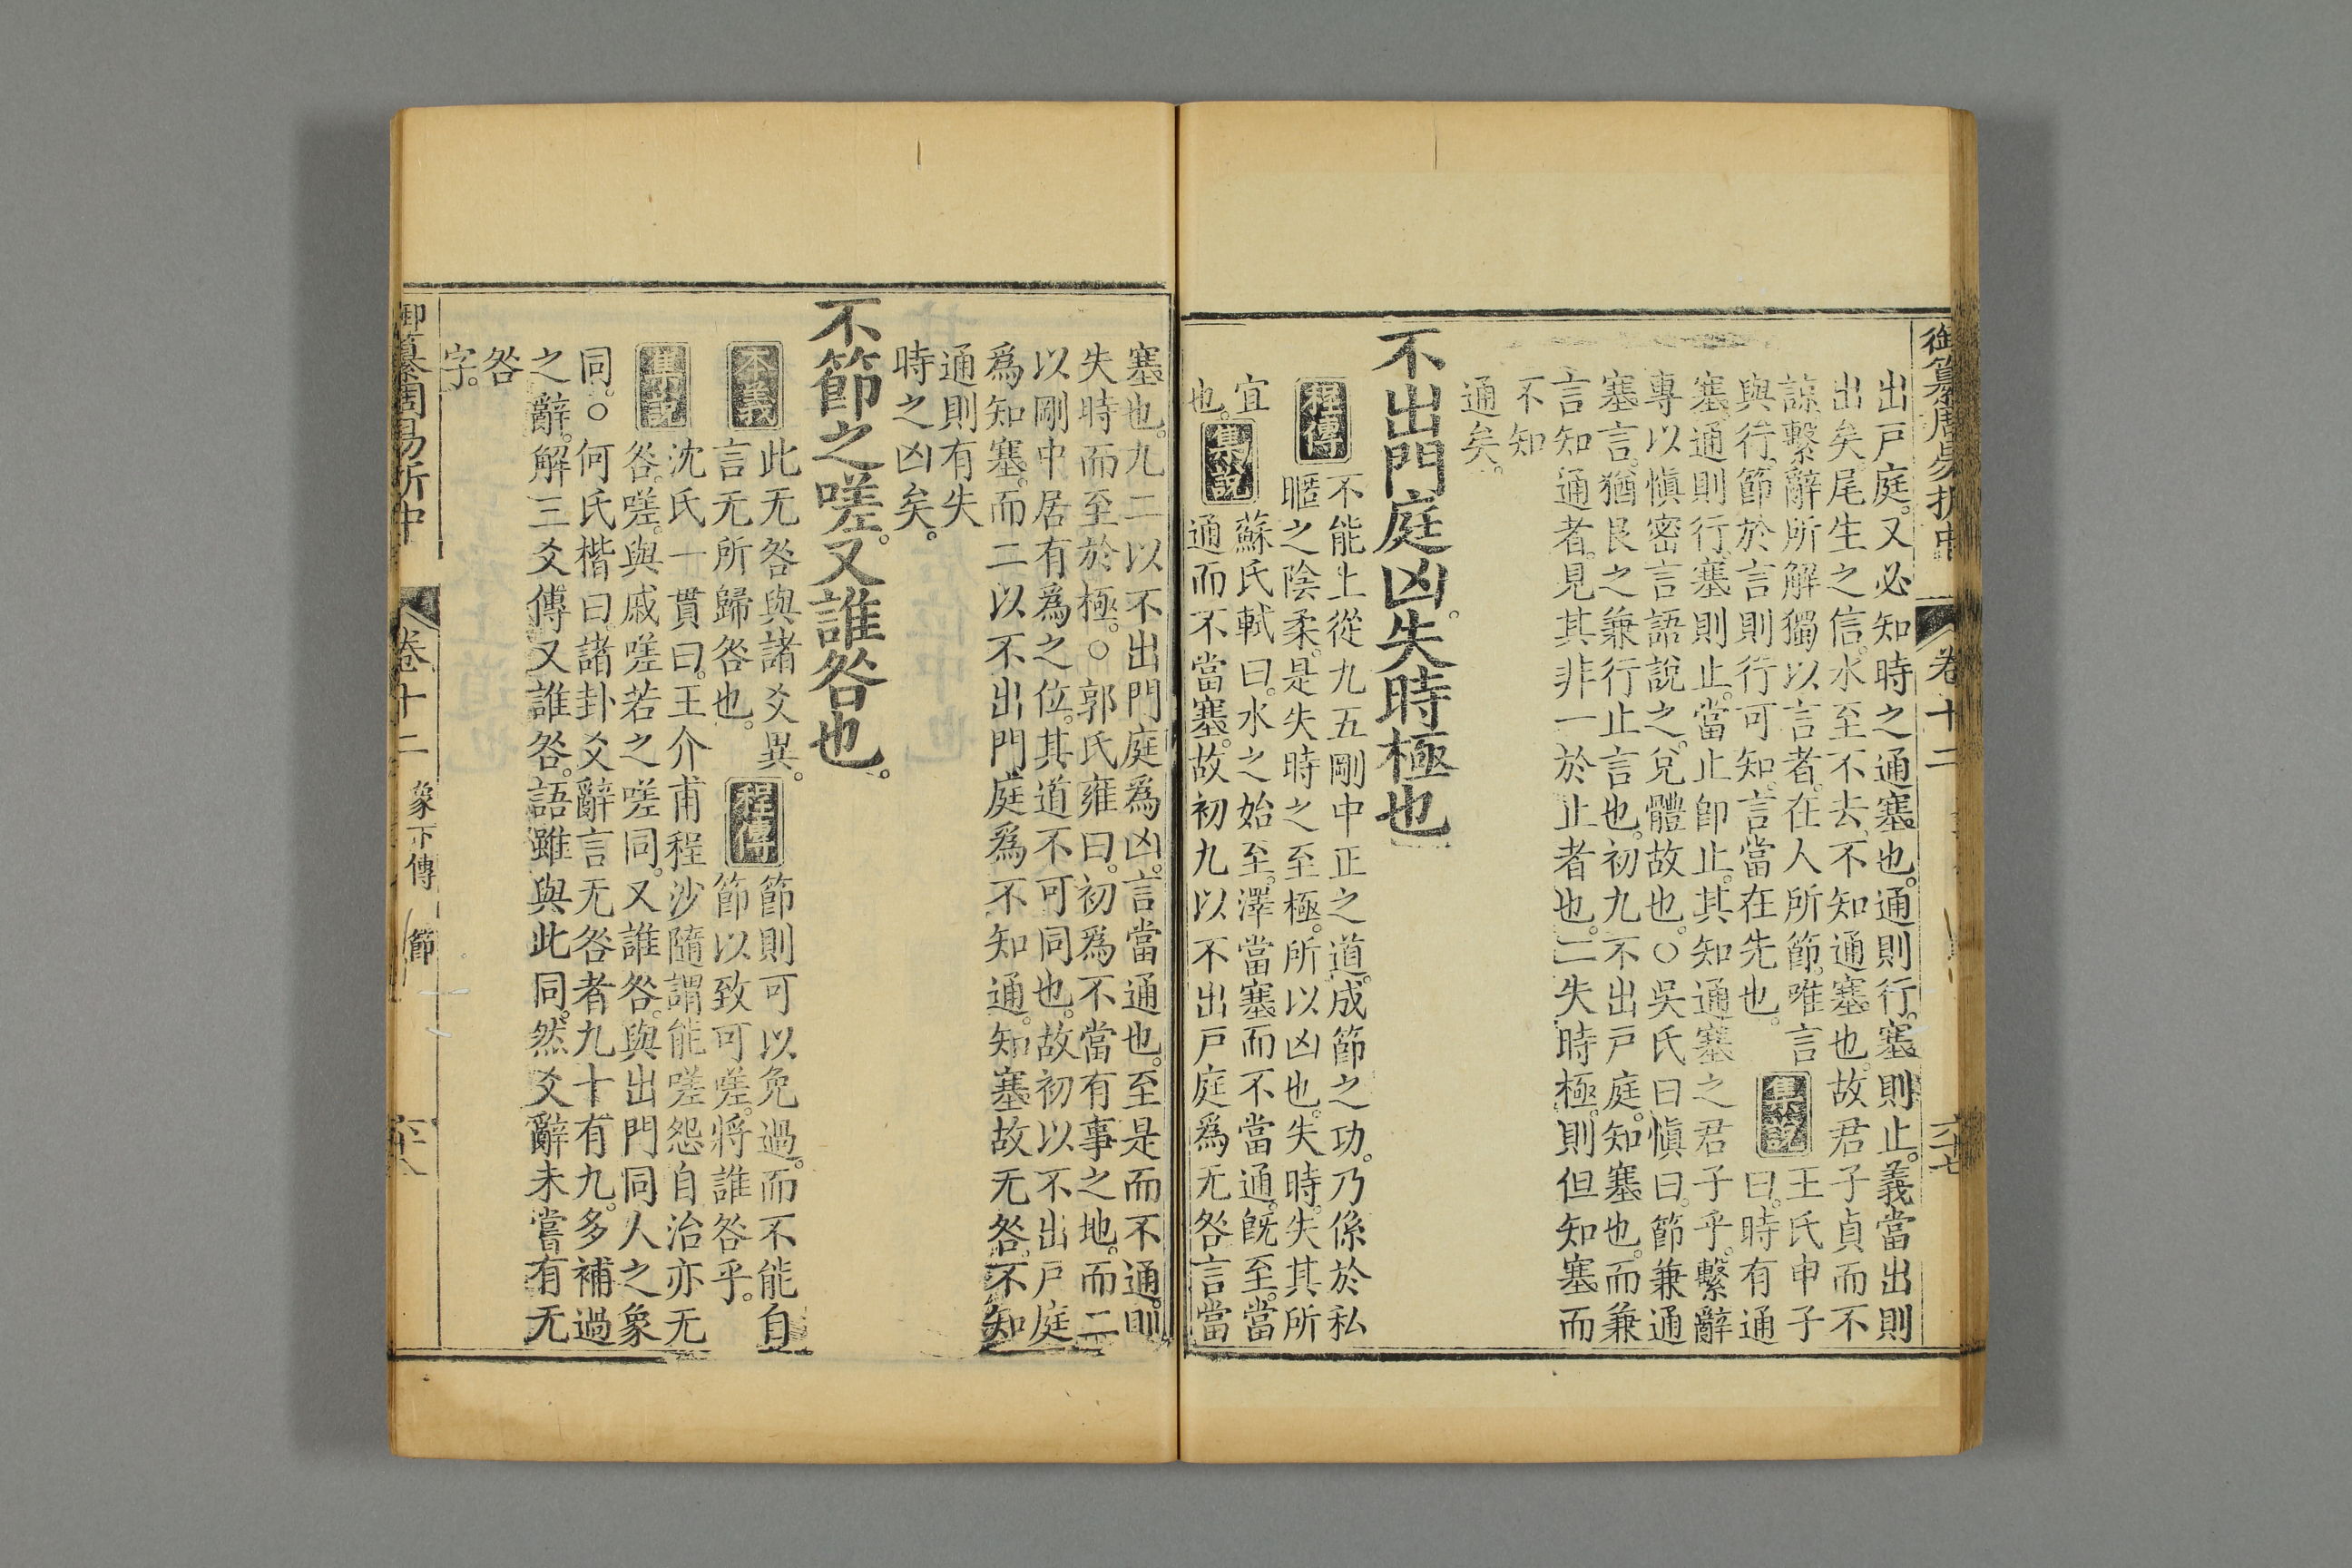 御纂周易折中 卷十二 六十七
出戸庭。又必知時之通塞也。通則行。塞則止。義當出則
出矣。尾生之信。水至不去。不知通塞也。故君子貞而不
諒。繫辭所解。獨以言者。在人所節。唯言
與行。節於言則行可知。言當在先也。
集說
王氏申子
曰。時有通
塞。通則行。塞則止。當止卽止。其知通塞之君子乎。繫辭
專以愼密言語說之。兌體故也。○吳氏曰愼曰。節兼通
塞言。猶艮之兼行止言也。初九不出戸庭。知塞也。而兼
言知通者。見其非一於止者也。二失時極。則但知塞而
不知
通矣。
不出門庭凶。失時極也
程傳
不能上從九五剛中正之道。成節之功。乃係於私
暱之陰柔。是失時之至極。所以凶也。失時。失其所
宜
也。
集說
蘇氏軾曰。水之始至。澤當塞而不當通。旣至。當
通而不當塞。故初九以不出戸庭爲无咎。言當
塞也。九二以不出門庭爲凶。言當通也。至是而不通。則
失時而至於極。○郭氏雍曰。初爲不當有事之地。而二
以剛中居有爲之位。其道不可同也。故初以不出戸庭
爲知塞。而二以不出門庭爲不知通。知塞故无咎。不知
通則有失
時之凶矣。
不節之嗟。又誰咎也。
本義
此无咎與諸爻異。
言无所歸咎也。
程傳
節則可以免過。而不能自
節以致可嗟。將誰咎乎。
集說
沈氏一貫曰。王介甫程沙隨謂能嗟怨自治亦无
咎。嗟。與戚嗟若之嗟同。又誰咎。與出門同人之象
同。○何氏楷曰。諸卦爻辭言无咎者九十有九。多補過
之辭。解三爻傳又誰咎。語雖與此同。然爻辭未嘗有无
咎
字。
御纂周易折中 卷十二 象下傳 節 六十八